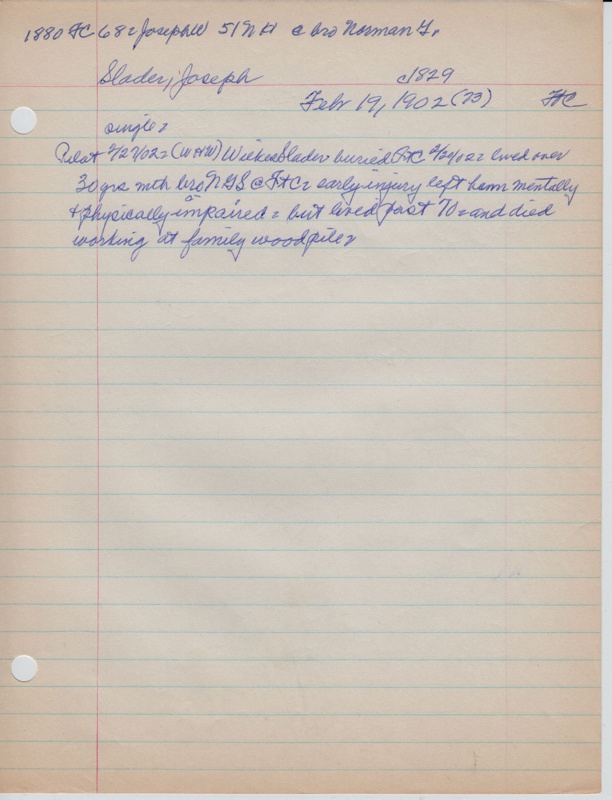 1880 FC 68 = Joseph W 51 NH c bro Norman G.
Slader, Joseph c1829
Feb 19, 1902 (73) FtC
single =
Pilot 2/27/02 = (WHW) Wilkes Slader buried FtC 2/20/02 = lived over
30 yrs with bro NGS c FtC = early injury left him mentally
+ physically impaired = but lived past 70 = and died
working at family woodpile =